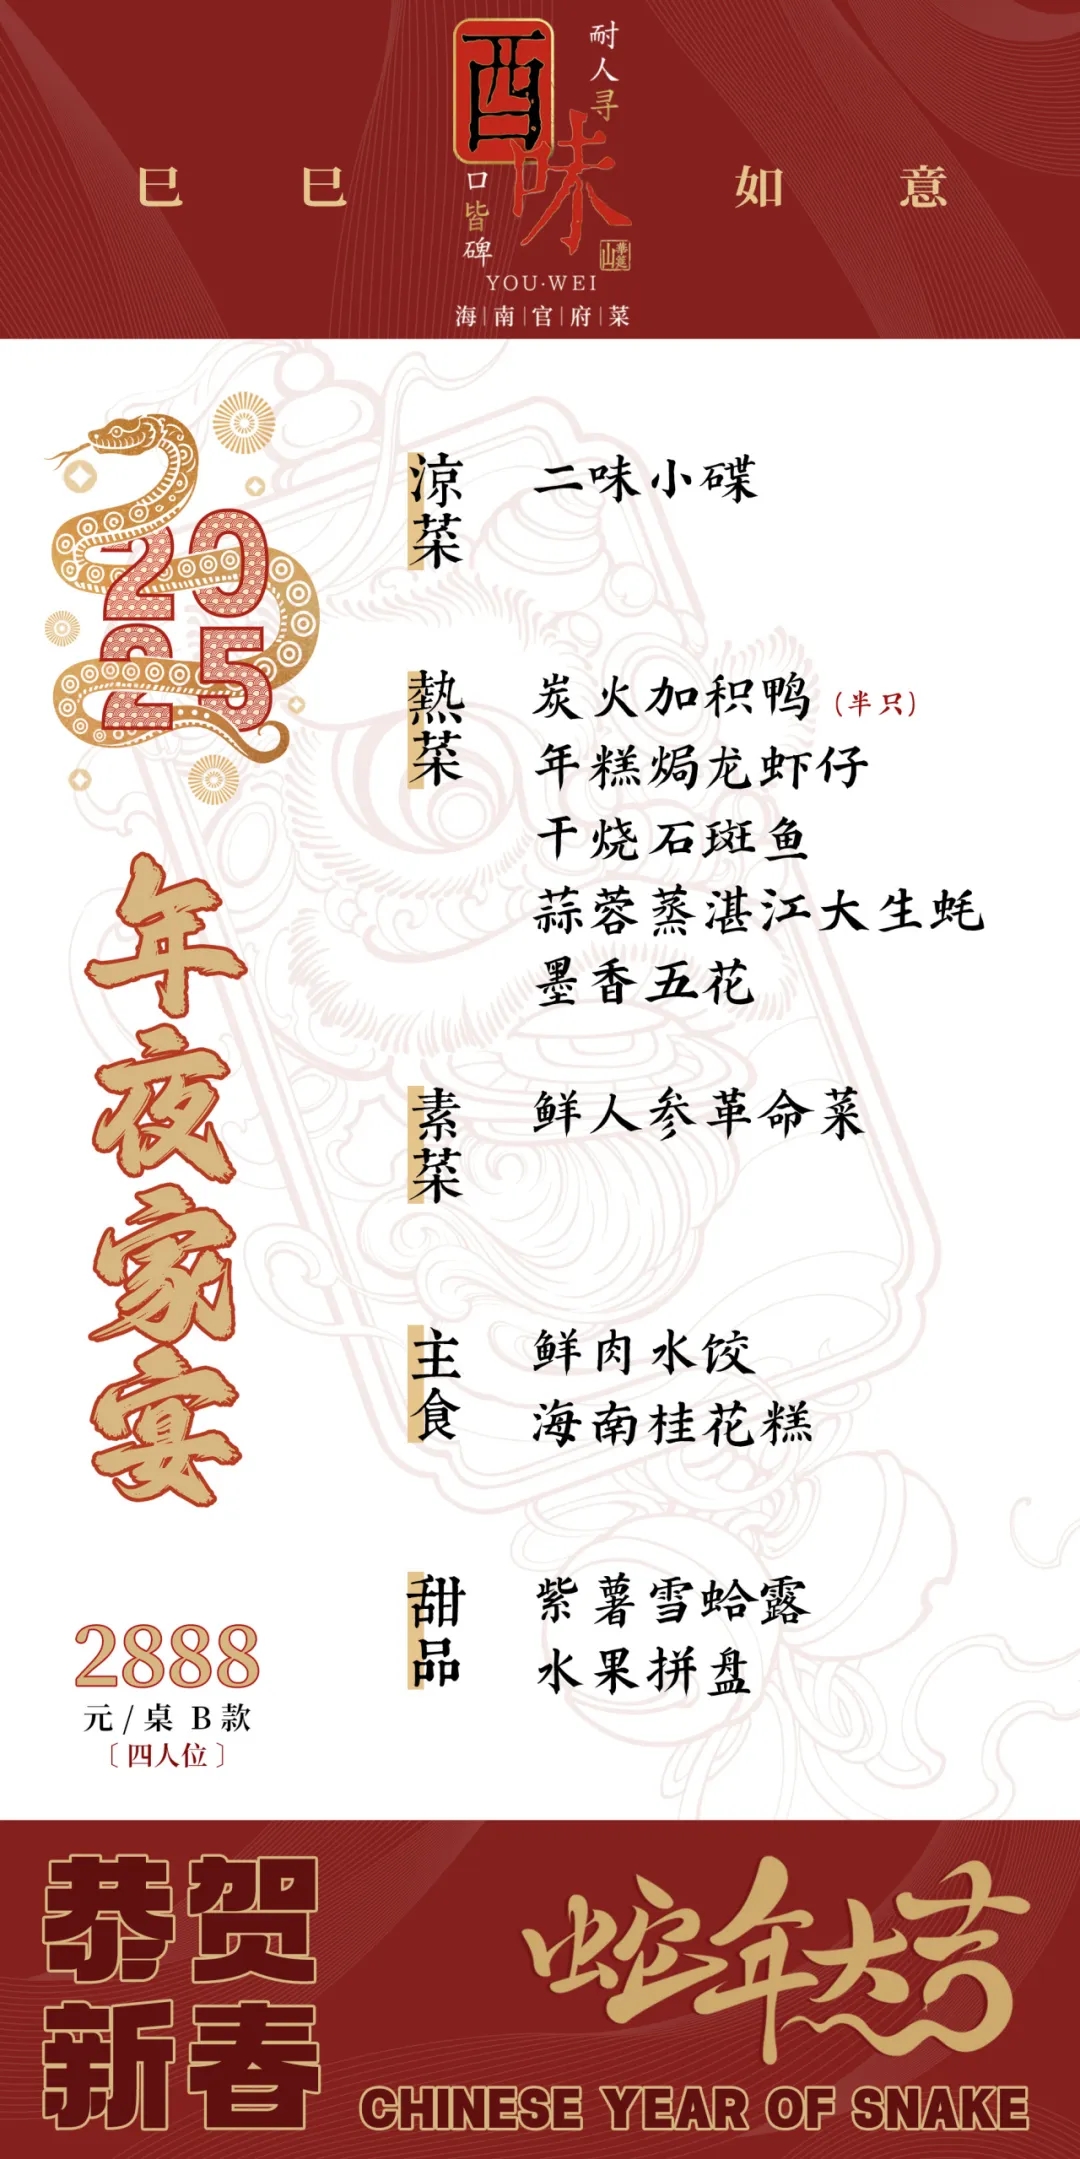 酉味
耐人寻
口皆碑
華莚山
YOU·WEI
海|南|官|府|菜
巳巳如意
2025
年夜家宴
2888
元/桌 B款
〔四人位〕
涼菜
二味小碟
熱菜
炭火加积鸭（半只）
年糕焗龙虾仔
干烧石斑鱼
蒜蓉蒸湛江大生蚝
墨香五花
素菜
鲜人参革命菜
主食
鲜肉水饺
海南桂花糕
甜品
紫薯雪蛤露
水果拼盘
恭贺
新春
蛇年大吉
CHINESE YEAR OF SNAKE